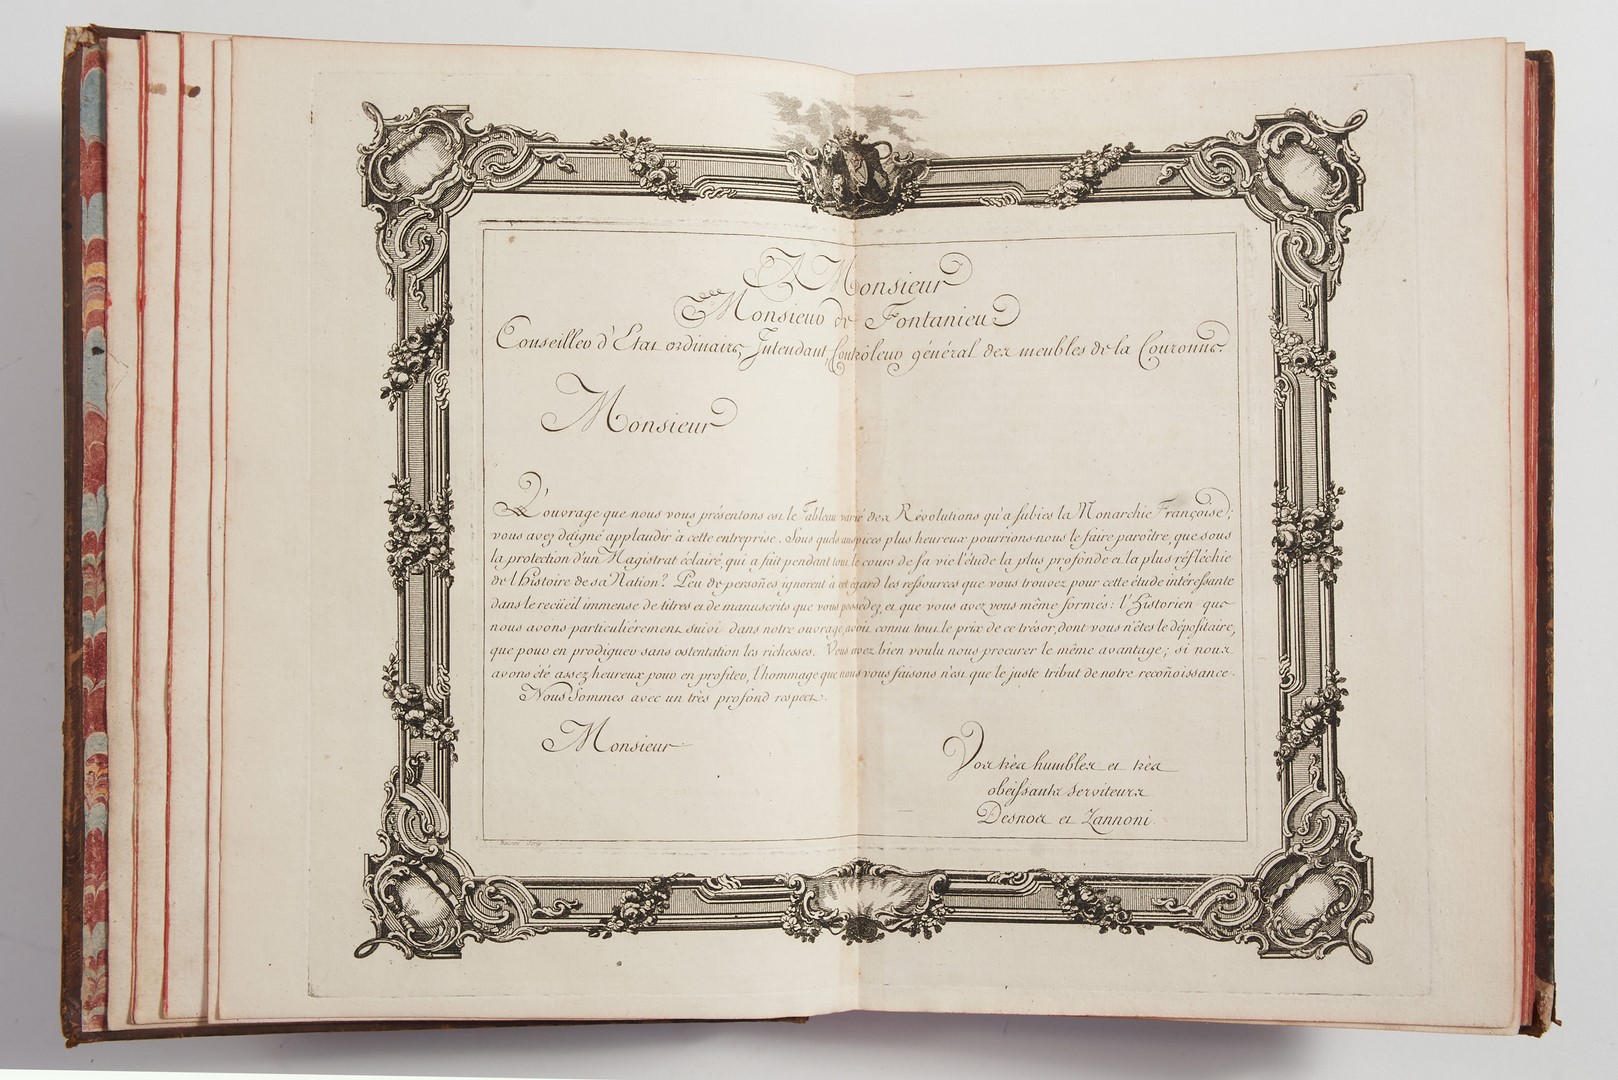 A Monsieur
Monsieur de Fontanieu
Conseiller d'Etat ordinaire, Intendant, Contrôleur général des meubles de la Couronne.
Monsieur
L'ouvrage que nous vous présentons est le Tableau varié des Révolutions qu'a subies la Monarchie Françoise;
vous avez daigné applaudir à cette entreprise. Sous quels auspices plus heureux pourrions-nous le faire paroître, que sous
la protection d'un Magistrat éclairé, qui a fait pendant tout le cours de sa vie l'étude la plus profonde et la plus réfléchie
de l'histoire de sa Nation? Peu de persoñes ignorent à cet egard les ressources que vous trouvez pour cette étude intéressante
dans le recüeil immense de titres et de manuscrits que vous possédez, et que vous avez vous même formés: l'historien que
nous avons particuliérement suivi dans notre ouvrage, avoit connu tout le prix de ce trésor, dont vous n'êtes le dépositaire,
que pour en prodiguer sans ostentation les richesses. Vous avez bien voulu nous procurer le même avantage; si nous
avons été assez heureux pour en profiter, l'hommage que nous vous faisons n'est que le juste tribut de notre recoñoissance.
Nous Sommes avec un très profond respect.
Monsieur
Vos très humbles et très
obéissants serviteurs
Desnos et Zannoni.